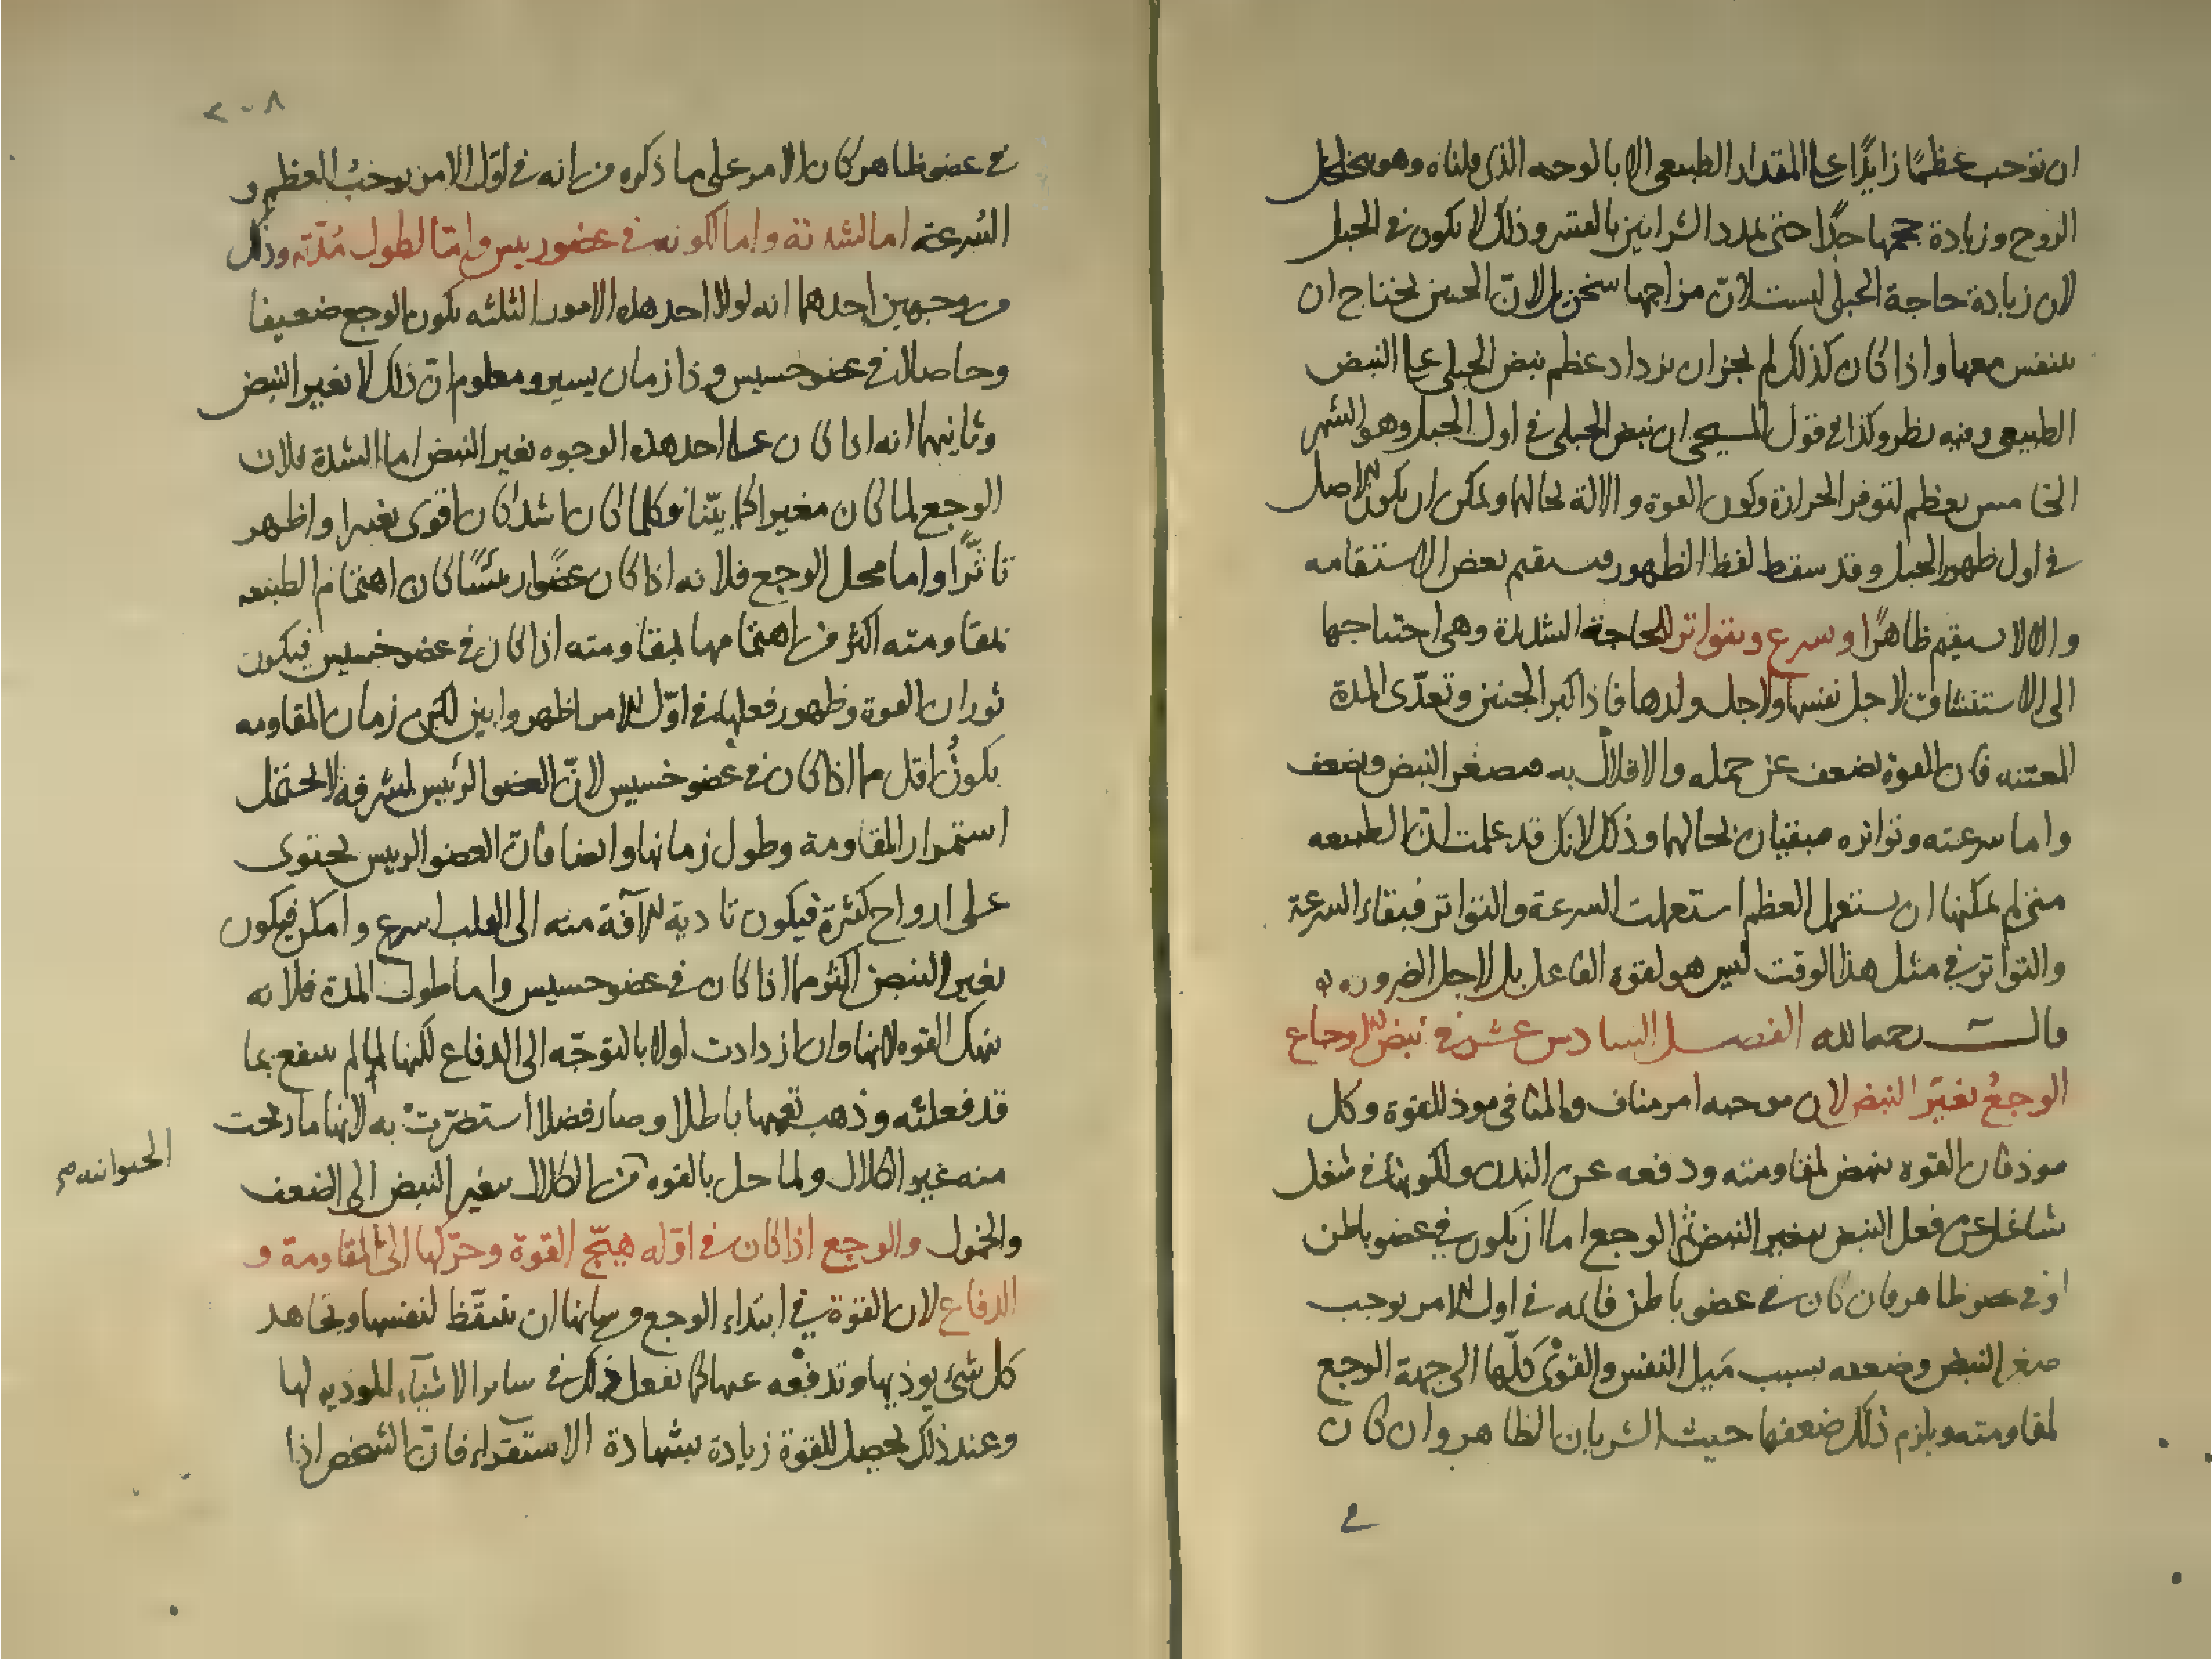 ان توجب عظمًا زايدًا على المقدار الطبيعى الا بالوجه الذى قلناه وهو تخلخل
الروح وزيادة حجمها جدًا حتى تمدد الشرايين بالقسر وذلك لا يكون فى الحبل
لان زيادة حاجة الحبلى ليست لان مزاجها سخن بل لانّ الجنين يحتاج ان
يتنفس معها واذا كان كذلك لم يجز ان يزداد عظم نبض الحبلى على النبض
الطبيعى وفيه نظر وكذا فى قول المسيحى ان نبض الحبلى فى اول الحبل وهو الشهر
الخامس يعظم لتوفر الحرارة وكون القوة والالة بحالها ويمكن ان يكون الاصل
فى اول ظهور الحبل وقد سقط لفظ الظهور فيستقيم بعض الاستقامه
والا لا يستقيم ظاهرًا ويسرع ويتواتر للحاجة الشديدة وهى احتياجها
الى الاستنشاق لاجل نفسها ولاجل ولدها فاذا كبر الجنين وتعدّى المدة
المعتنه فان القوة تضعف عن حمله والاقلال به فيصغر النبض ويضعف
واما سرعته وتواتره فيبقيان بحالهما وذلك لانك قد علمت انّ الطبيعه
متى لم يمكنها ان يستعمل العظم استعملت السرعة والتواتر فبقاء السرعة
والتواتر فى مثل هذا الوقت ليس هو لقوة الفاعل بل لاجل الضرورة
قال رحمه الله الفصل السادس عشر فى نبض الاوجاع
الوجعُ يغيّر النبض لان موجبه امر مناف والمنافى موذ للقوة وكل
موذ فان القوة تنهض لمقاومته ودفعه عن البدن ولكونها فى شغل
شاغل عن فعل النبض يتغير النبض ثم الوجع اما ان يكون فى عضو باطن
او فى عضو ظاهر فان كان فى عضو باطن فانه فى اول الامر يوجب
صغر النبض وضعفه بسبب مَيل النفس والقوىْ كلّها الى جهة الوجع
لمقاومته ويلزم ذلك ضعفها حيث الشريان الظاهر وان كان
فى
٢٠٨
فى عضو ظاهر كان الامر على ما ذكره من انه فى اوّل الامر يوجبُ العظم و
السُرعة اما لشدته واما لكونه فى عضو رييس وامّا لطول مُدّته وذلك
من وجهين احدهما انه لولا احد هذه الامور الثلثه يكون الوجع ضعيفا
وحاصلا فى عضو خسيس وذا زمان يسير ومعلوم انّ ذلك لا يغير النبض
وثانيهما انه اذا كان على احد هذه الوجوه يغير النبض اما الشدة فلان
الوجع لما كان مغيرا كما بيّنا فكلما كان اشد كان اقوى تغييرا واظهر
تاثّرًا واما محل الوجع فلانه اذا كان عضوًا رئيسًا كان اهتمام الطبيعه
بمقاومته اكثر من اهتمامها بمقاومته اذا كان فى عضو خسيس فيكون
ثوران القوة وظهور فعلها فى اوّل الامر اظهر وابين لكن زمان المقاومه
يكونُ اقل مما اذا كان فى عضو خسيس لانّ العضو الرئيس لشرفه لا يحتمل
استمرار المقاومة وطول زمانها وايضا فانّ العضو الرييس يحتوى
على ارواح كثيرة فيكون تادية الآفة منه الى القلب اسرع وامكن فيكون
تغير النبض اكثر مما اذا كان فى عضو خسيس واما طول المدة فلانه
ينهك القوه لانها وان ازدادت اولا بالتوجّه الى الدفاع لكنها لما لم ينتفع بما
قد فعلته وذهب تعبها باطلا وصار فضلا استضرّت به لانها ما ربحت
منه غير الكلال ولما حل بالقوه من الكلال يتغير النبض الى الضعف
الحيوانيه
والخمول والوجع اذا كان فى اوّله هيّج القوة وحرّكها الى المقاومة و
الدفاع لان القوة فى ابتداء الوجع من شانها ان تتيقّظ لنفسها وتجاهد
كل شئ يوذيها وتدفعه عنها كما تفعل ذلك فى سائر الاشياء الموذيه لها
وعند ذلك يحصل للقوة زيادة بشهادة الاستقراء فانّ الشخص اذا